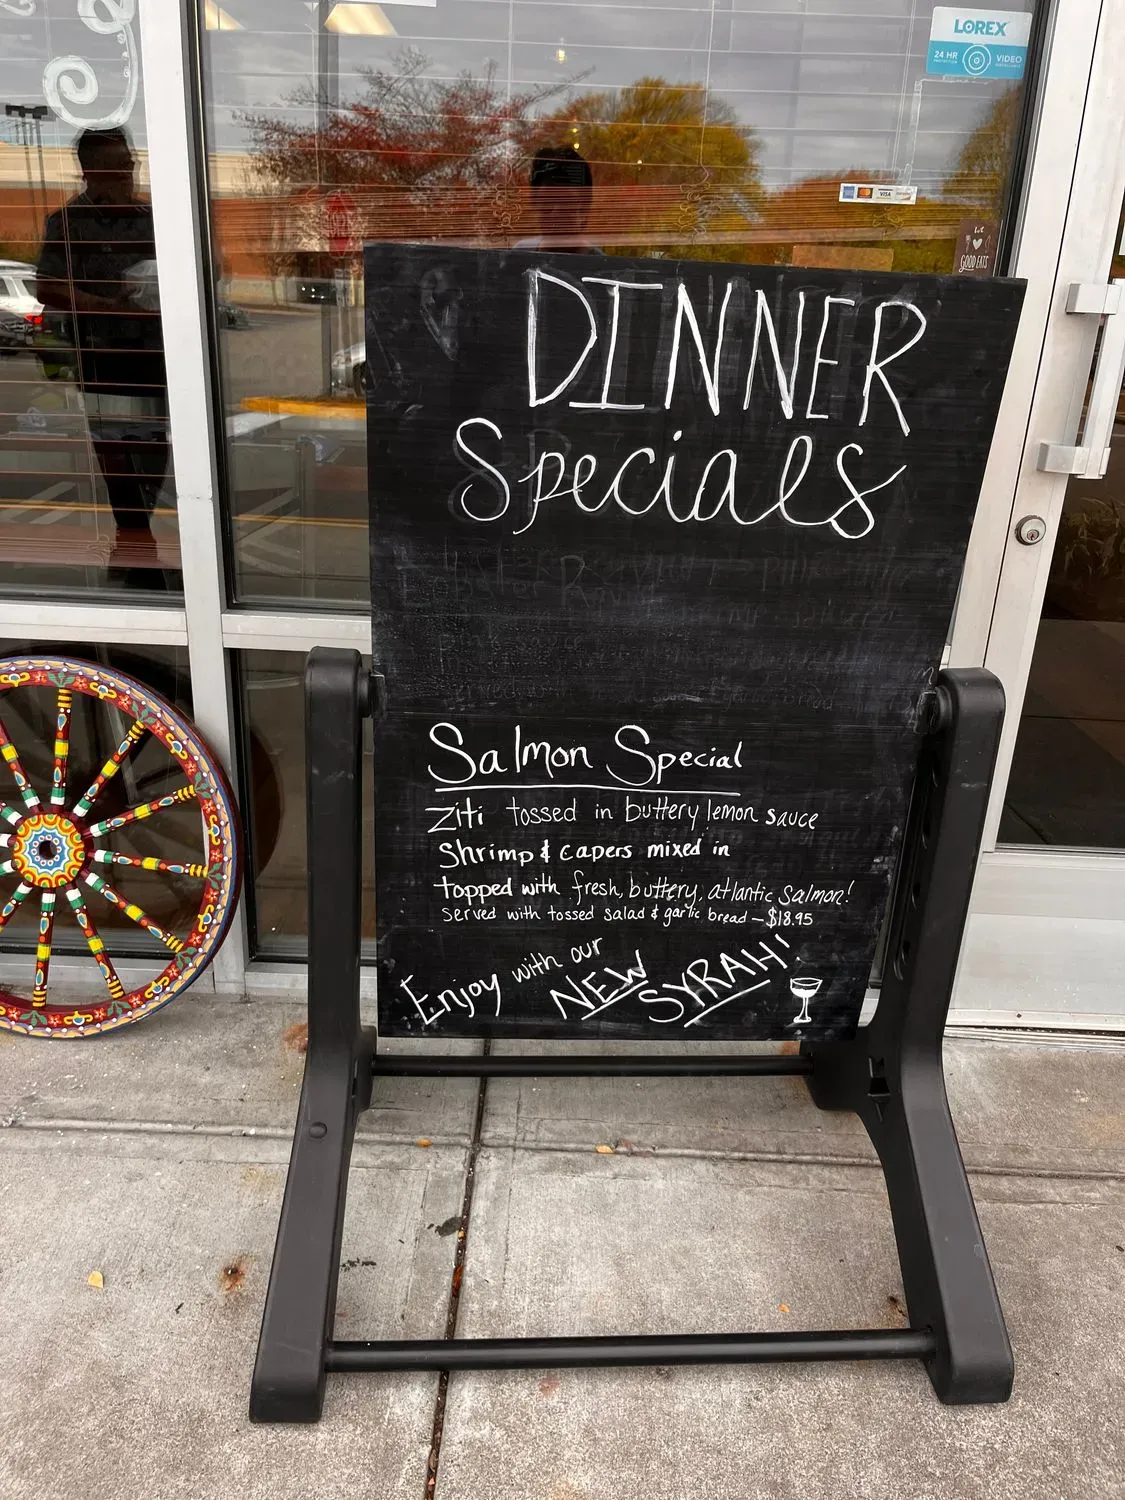 LOREX
24 HR
VIDEO
VISA
GOOD EATS
DINNER
Specials
Lobster Ravi
Salmon Special
Ziti tossed in buttery lemon sauce
Shrimp & capers mixed in
topped with fresh, buttery, atlantic salmon!
Served with tossed salad & garlic bread - $18.95
Enjoy with our
NEW SYRAH!